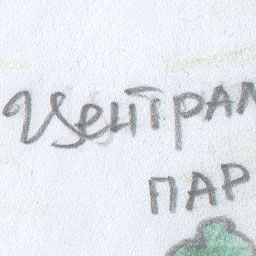 Централ
ПАР